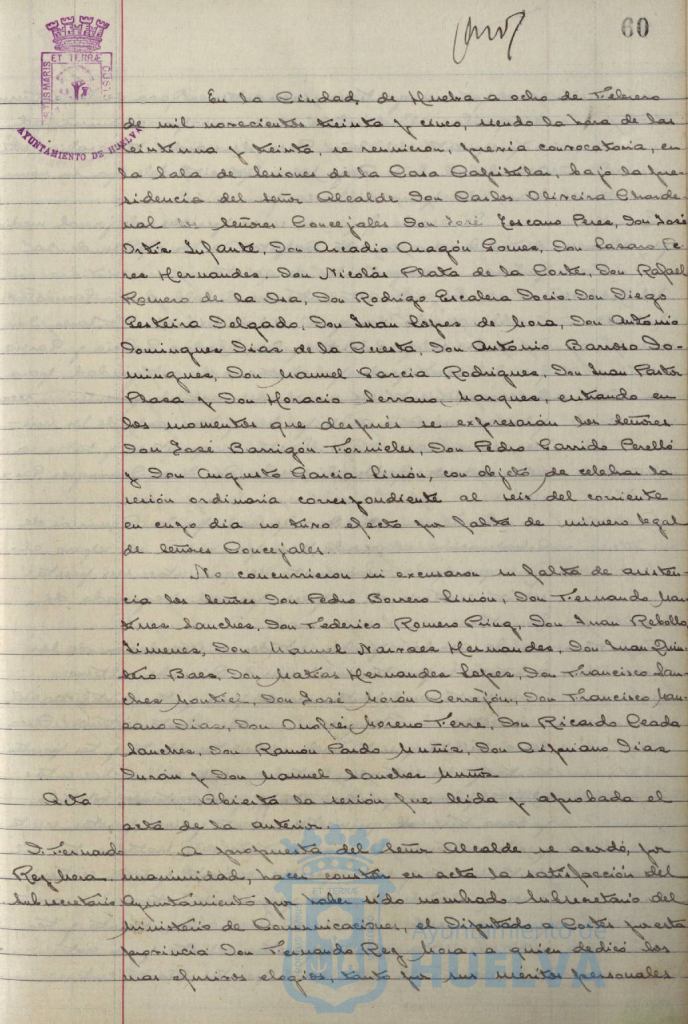 60
ET TERRÆ
AYUNTAMIENTO DE HUELVA
En la Ciudad, de Huelva a ocho de Febrero
de mil novecientos treinta y cinco, siendo la hora de las
veintiuna y treinta, se reunieron, previa convocatoria, en
la Sala de Sesiones de la Casa Capitular, bajo la pre-
sidencia del señor Alcalde Don Carlos Oliveira Charde-
nal los Señores Concejales Don José Toscano Peres, Don José
Ortiz Infante, Don Arcadio Aragón Gomes, Don Casaro Pe-
res Hernandes, Don Nicolás Plata de la Corte, Don Rafael
Romero de la Osa, Don Rodrigo Escalera Docio. Don Diego
Lesteira Delgado, Don Juan Lopes de Mora, Don Antonio
Domingues Dias de la Cuesta, Don Antonio Barroso Do-
mingues, Don Manuel Garcia Rodrigues, Don Juan Pastor
Plasa y Don Horacio Serrano Marques, entrando en
los momentos que después se expresarán los señores
Don José Barrigón Tornieles, Don Pedro Garrido Perelló
y Don Augusto Garcia Limón, con objeto de celebrar la
sesión ordinaria correspondiente al seis del corriente
en cuyo dia no tuvo efecto por falta de número legal
de Señores Concejales.
No concurrieron ni excusaron su falta de asisten-
cia los Señores Don Pedro Borrero Limón, Don Fernando Mar-
tines Sanches, Don Federico Romero Pring, Don Juan Rebollo
Jimenes, Don Manuel Narvaes Hernandes, Don Juan Quin-
tero Baes, Don Matías Hernandes Lopes, Don Francisco San-
ches Montiel, Don José Morón Cerrejón, Don Francisco Man-
sano Dias, Don Onofre Moreno Ferre, Don Ricardo Ceada
Sanches, Don Ramón Pardo Muñiz, Don Cipriano Dias
Durán y Don Manuel Sanches Muñoz
Acta Abierta la sesión fue leida y aprobada el
acta de la anterior
D. Fernando A propuesta del Señor Alcalde se acordó, por
Rey Mora unanimidad, hacer constar en acta la satisfacción del
Subsecretario Ayuntamiento por haber sido nombrado Subsecretario del
Ministerio de Comunicaciones, el Diputado a Cortes por esta
provincia Don Fernando Rey Mora a quien dedicó los
mas efusivos elogios, tanto por sus méritos personales
HUELVA